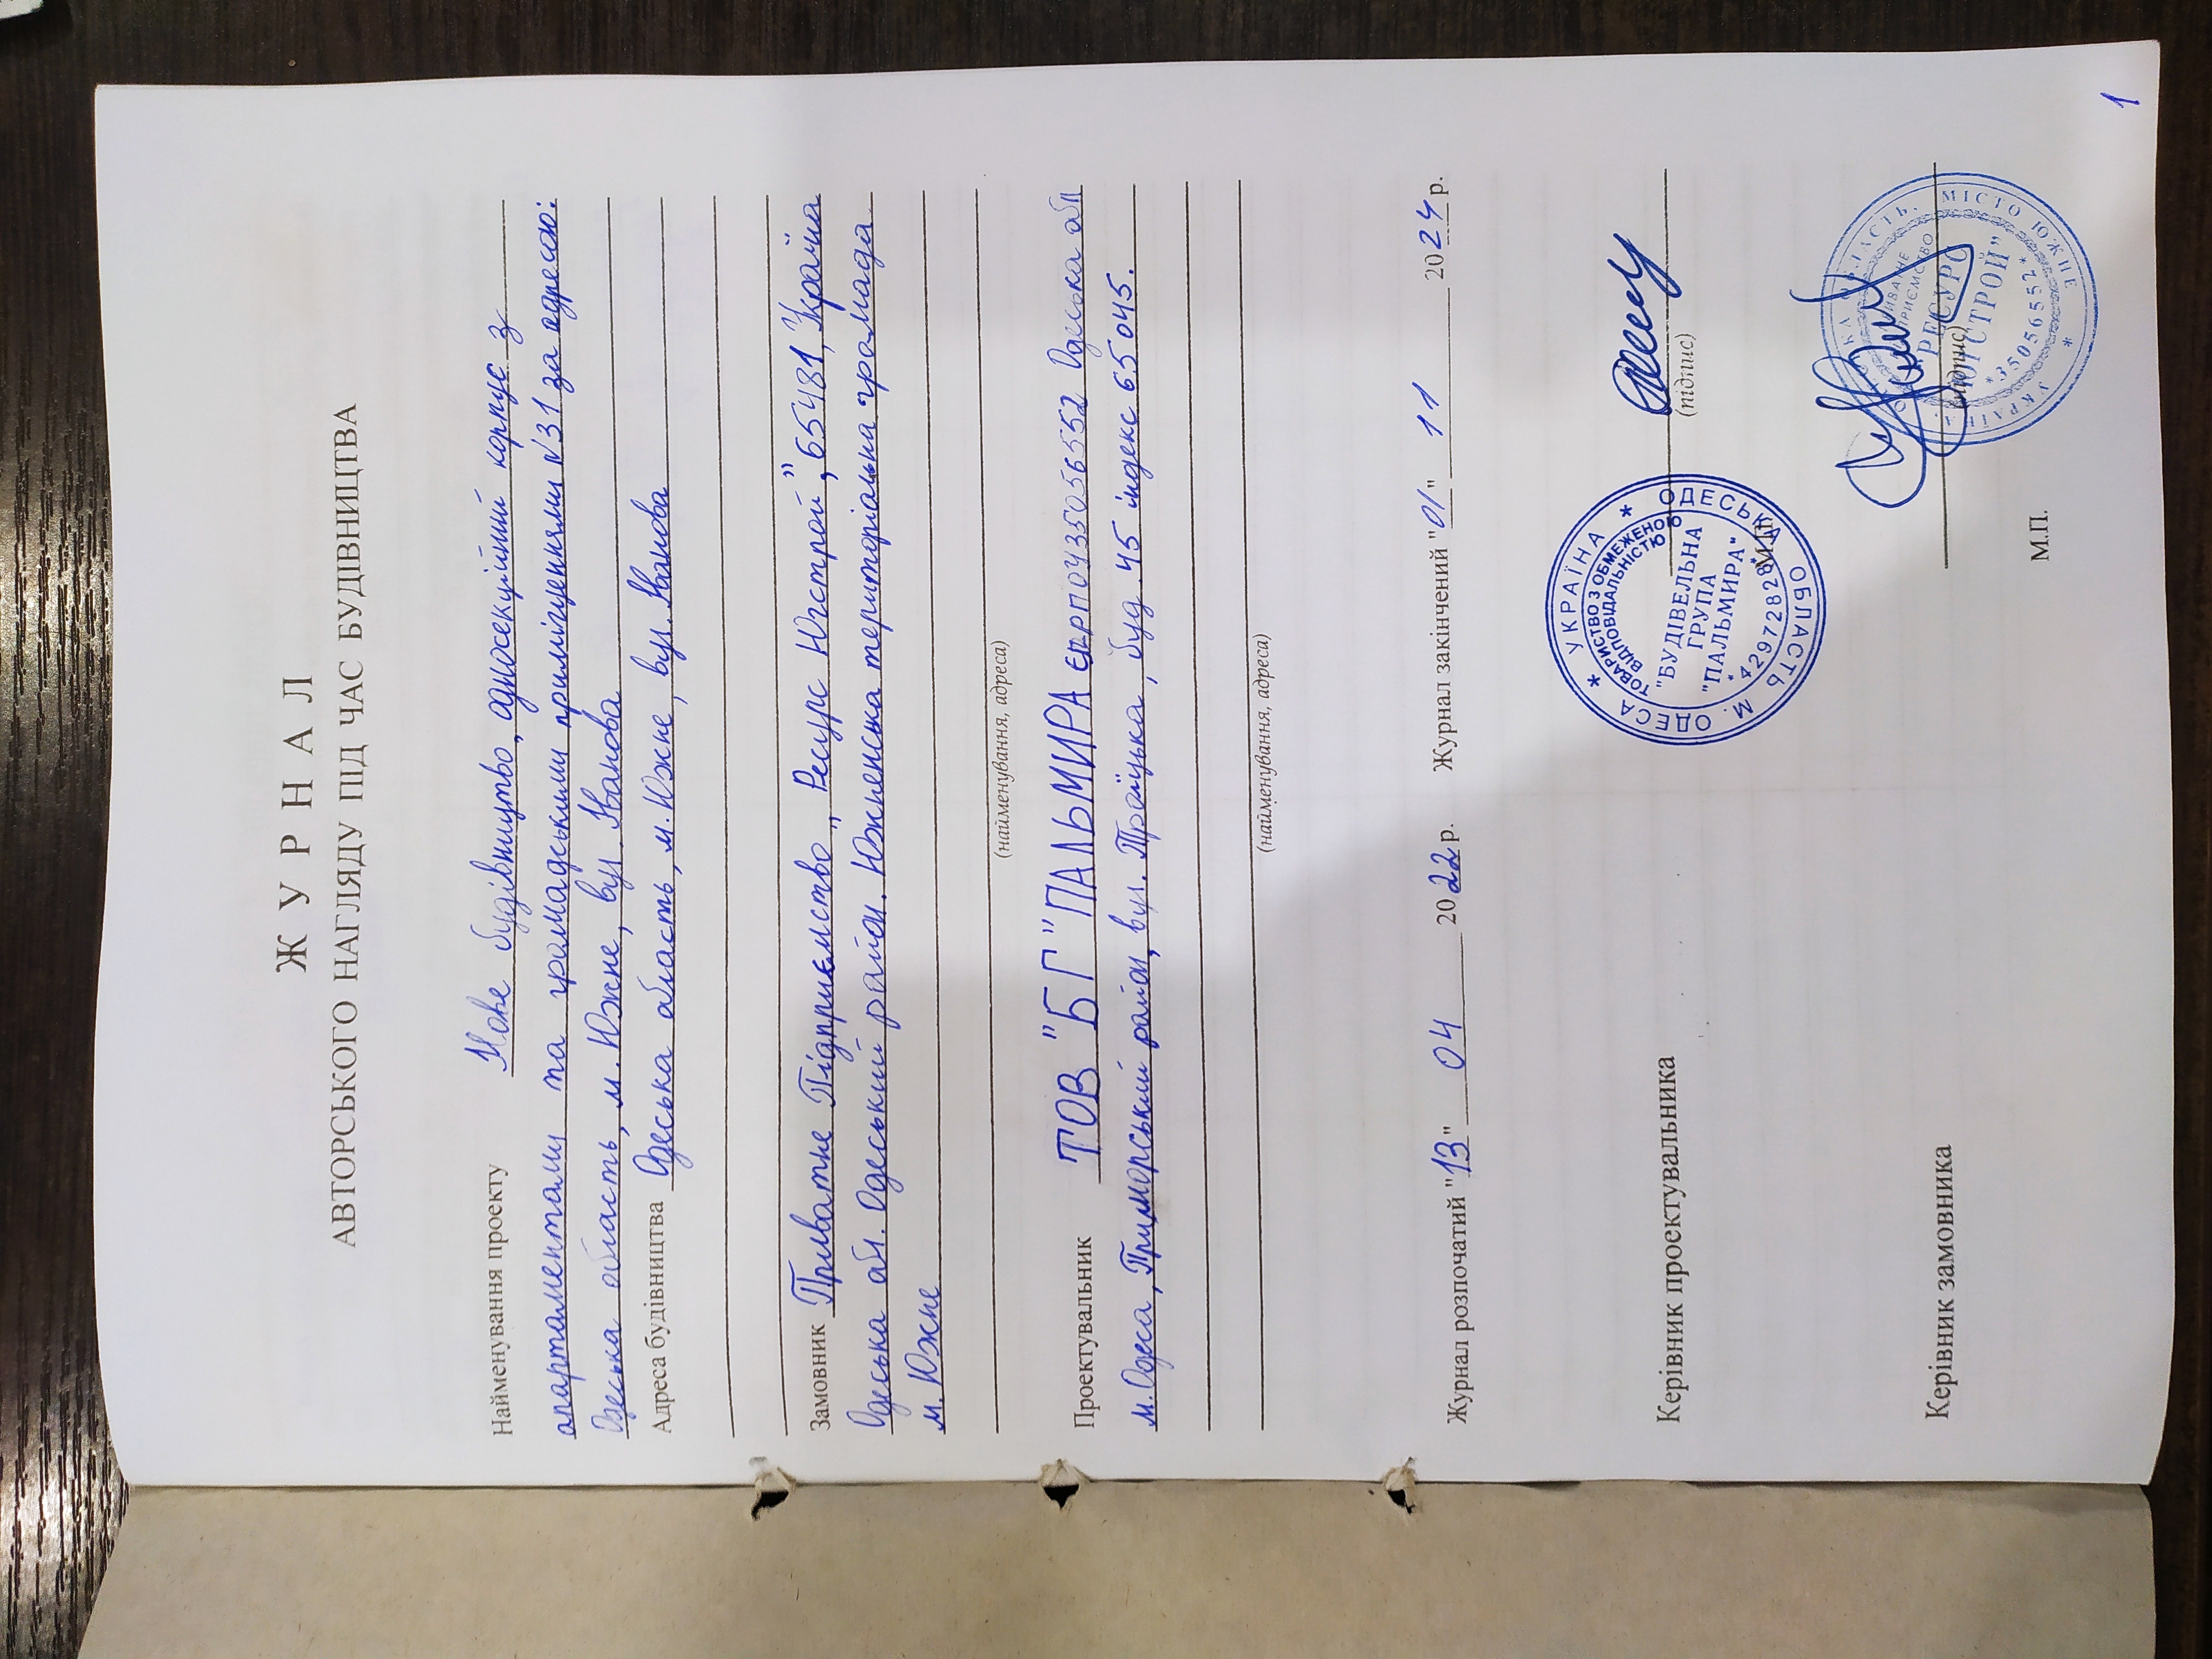 Ж У Р Н А Л
АВТОРСЬКОГО НАГЛЯДУ ПІД ЧАС БУДІВНИЦТВА
Найменування проекту Нове будівництво „односекційний корпус з
апартаментами та громадськими приміщеннями №31 за адресою:
Одеська область, м. Южне, вул. Іванова
Адреса будівництва Одеська область, м. Южне, вул. Іванова
Замовник Приватне Підприємство „Ресурс Югстрой", 65481, Україна
Одеська обл. Одеський район. Южненська територіальна громада
м. Южне
(найменування, адреса)
Проектувальник ТОВ "БГ "ПАЛЬМИРА ЄДРПОУ35056552 Одеська обл
м. Одеса, Приморський район, вул. Троїцька, буд. 45 індекс 65045.
(найменування, адреса)
Журнал розпочатий "13" 04 2022 р. Журнал закінчений "01" 11 2024 р.
Керівник проектувальника
(підпис)
М.П.
* УКРАЇНА * ОДЕСЬКА ОБЛАСТЬ М. ОДЕСА
ТОВАРИСТВО З ОБМЕЖЕНОЮ
ВІДПОВІДАЛЬНІСТЮ
"БУДІВЕЛЬНА
ГРУПА
"ПАЛЬМИРА"
* 42972828 *
Керівник замовника
(підпис)
М.П.
УКРАЇНА ОДЕСЬКА ОБЛАСТЬ, МІСТО ЮЖНЕ *
ПРИВАТНЕ
ПІДПРИЄМСТВО
"РЕСУРС
ЮГСТРОЙ"
*35056552*
1